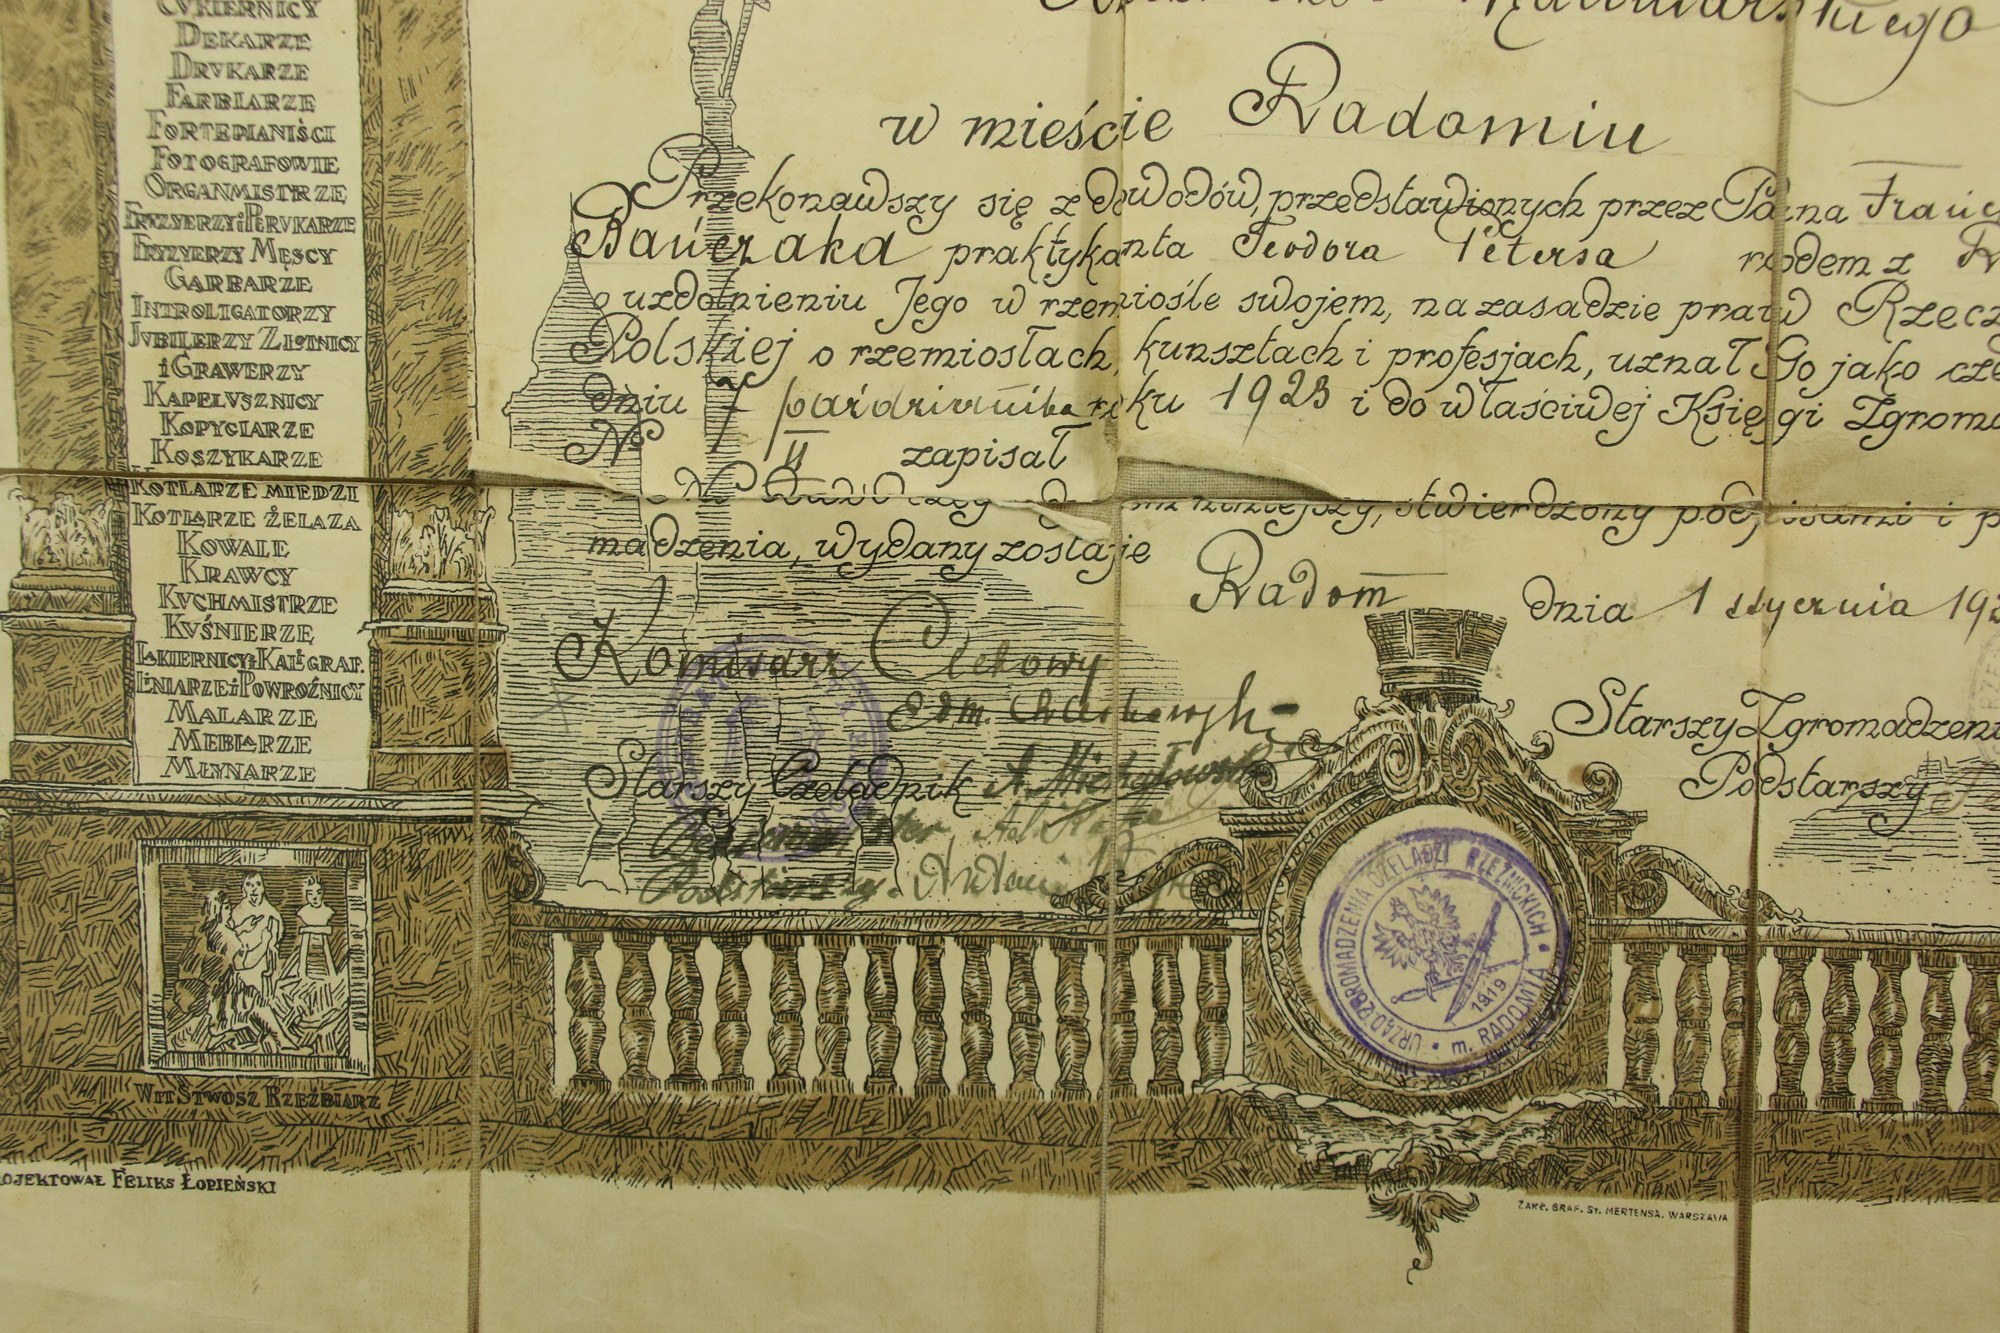 CUKIERNICY
DEKARZE
DRUKARZE
FARBIARZE
FORTEPIANIŚCI
FOTOGRAFOWIE
ORGANMISTRZE
FRYZYERZY i PERUKARZE
FRYZYERZY MĘSCY
GARBARZE
INTROLIGATORZY
JUBILERZY ZŁOTNICY
i GRAWERZY
KAPELUSZNICY
KOPYCIARZE
KOSZYKARZE
KOTLARZE MIEDZI
KOTLARZE ŻELAZA
KOWALE
KRAWCY
KUCHMISTRZE
KUŚNIERZE
LAKIERNICY i KALIGRAF.
LNIARZE i POWROŹNICY
MALARZE
MEBLARZE
MŁYNARZE
WIT STWOSZ RZEŹBIARZ
OJEKTOWAŁ FELIKS ŁOPIEŃSKI
w mieście Radomiu
Przekonawszy się z dowodów, przedstawionych przez Pana
Bańczaka praktykanta Teodora Petersa rodem z
o uzdolnieniu Jego w rzemiośle swojem, na zasadzie praw Rzecz
Polskiej o rzemiosłach, kunsztach i profesjach, uznał Go jako cze
dniu 7 października roku 1923 i do właściwej Księgi Zgroma
No 7/II zapisał
niniejszy, stwierdzony podpisami i p
madzenia, wydany zostaje
Radom dnia 1 stycznia 192
Komisarz Cechowy
Edm.
Starszy Zgromadzeni
Starszy Czeladnik A. Michałowski
Podstarszy
Podstarszy. Antoni
URZĄD ZGROMADZENIA CZELADZI RZEŹNICKICH • m. RADOMIA •
1919
ZAKŁ. GRAF. ST. MERTENSA. WARSZAWA